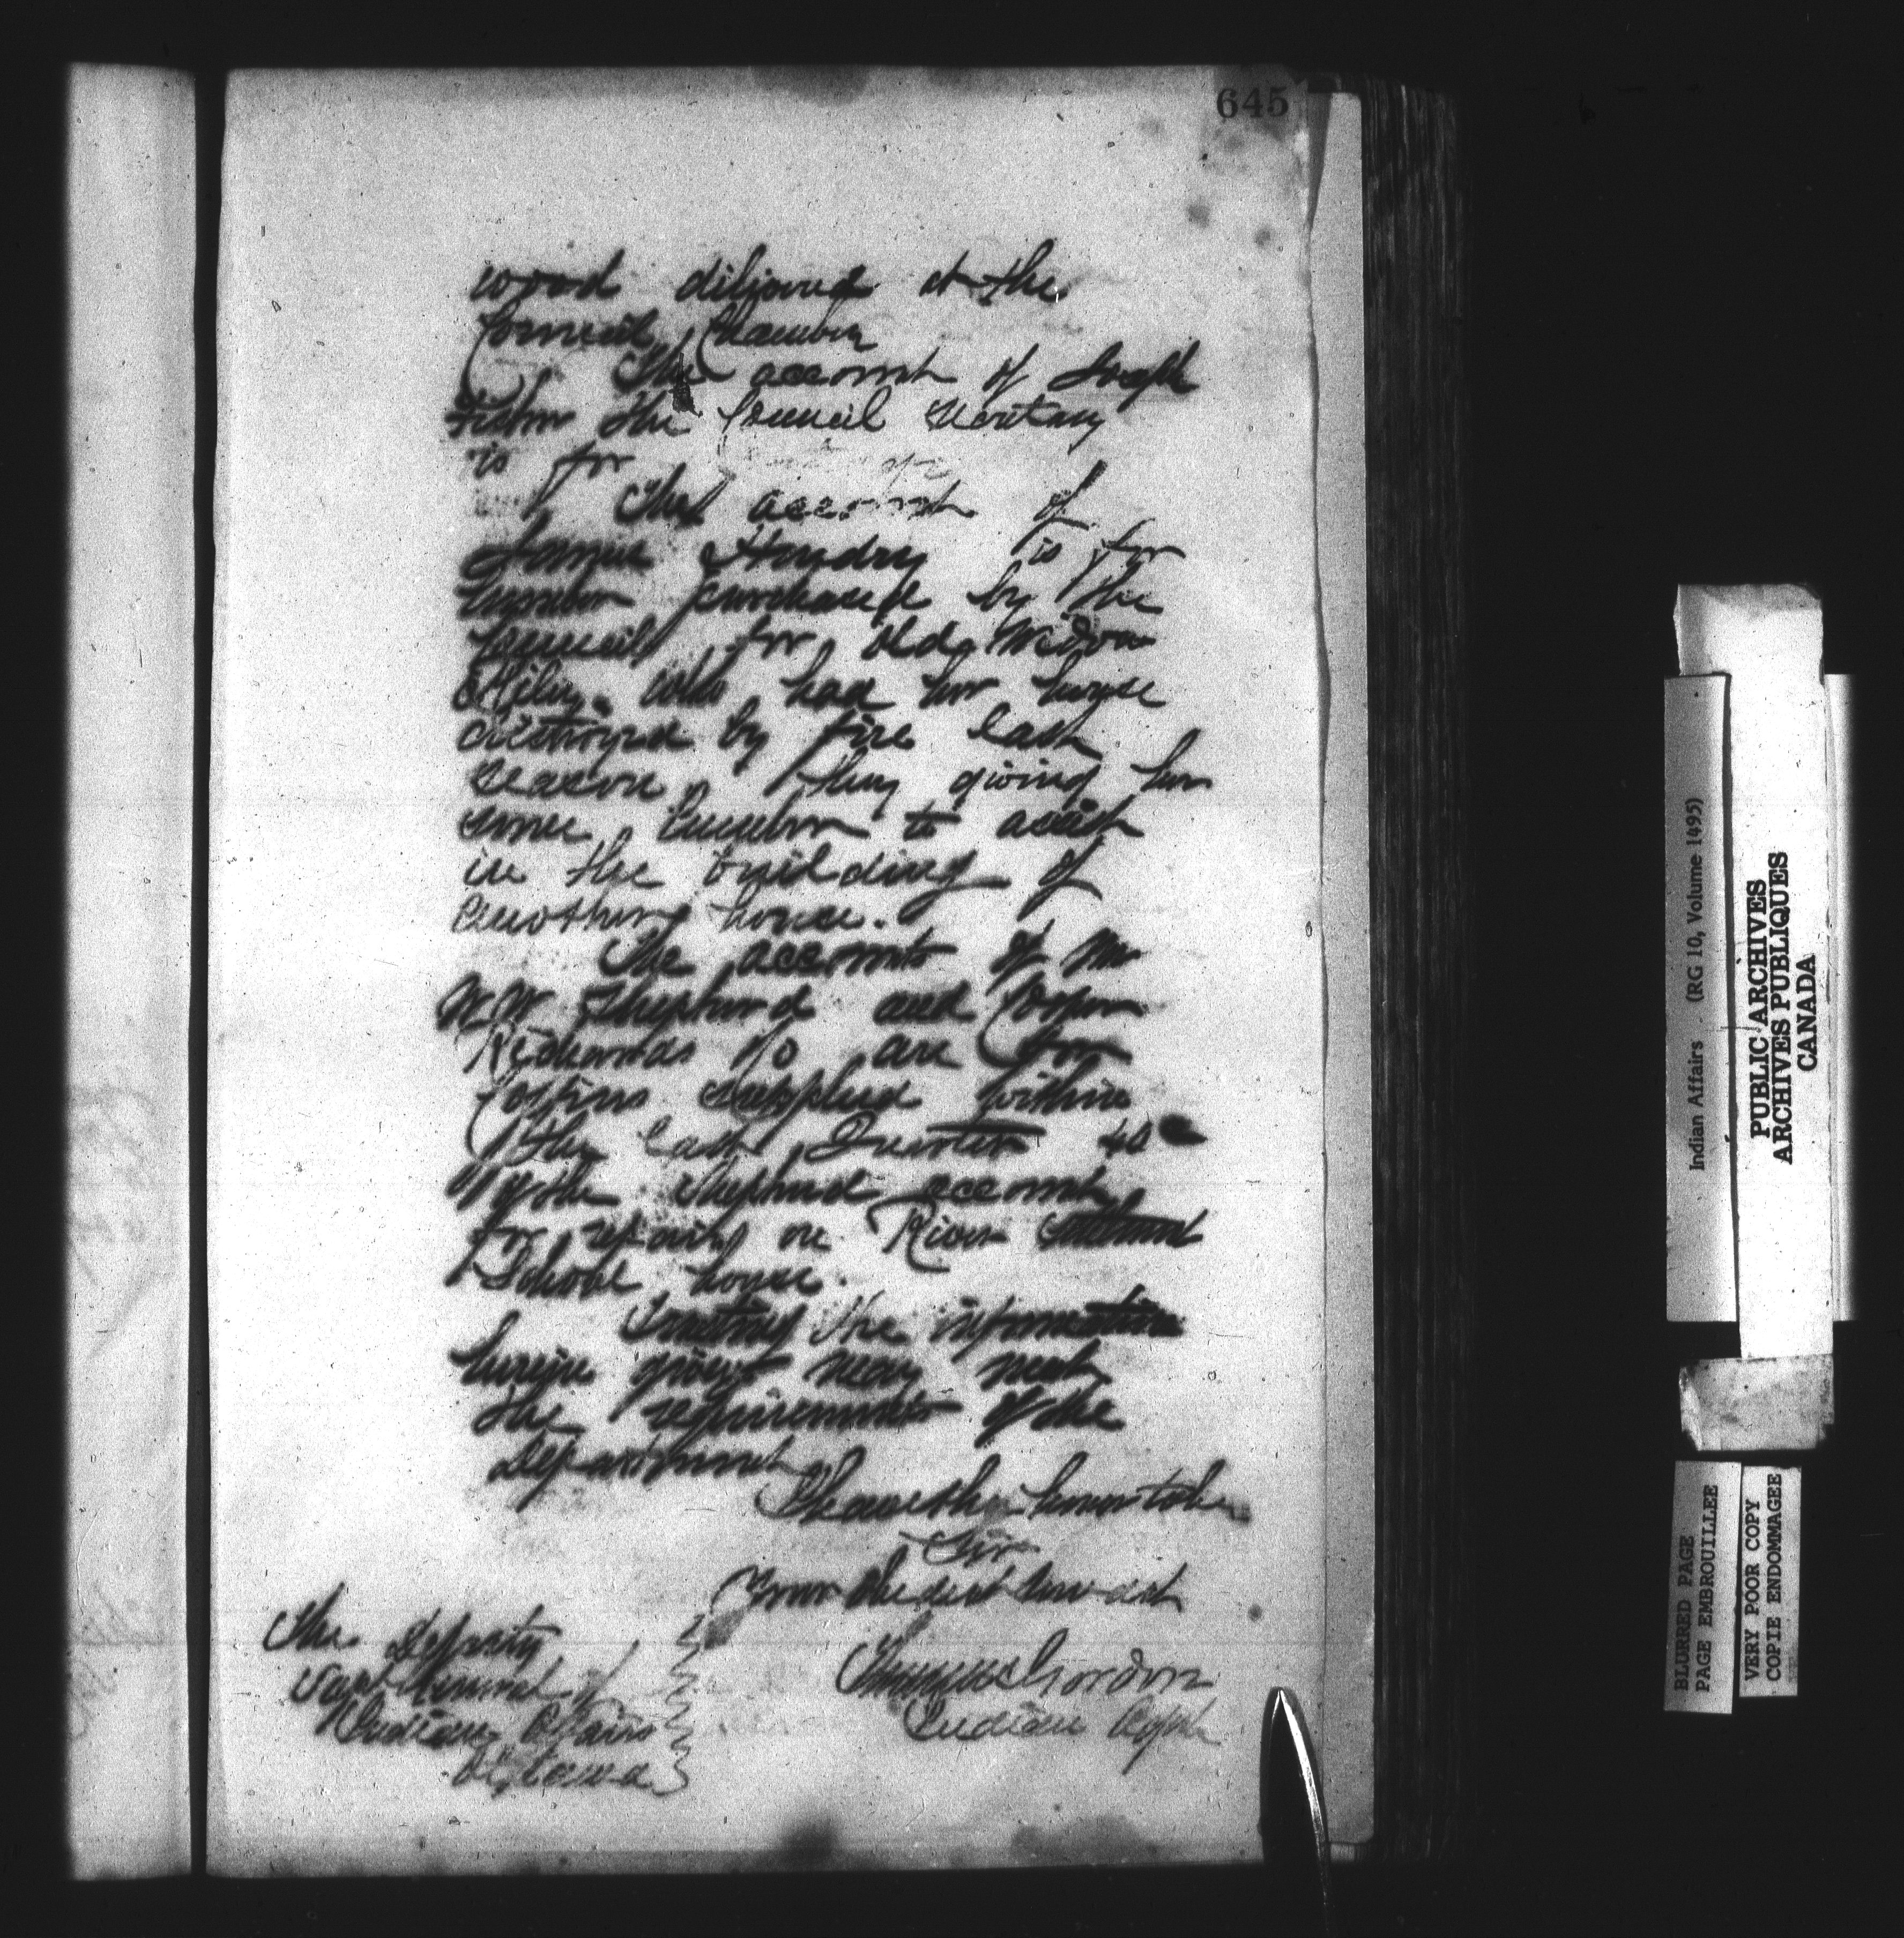 645
wood delivered at the
Council Chamber
The account of Joseph
Fisher the Council Secretary
is for
The account of
James Hendry is for
lumber purchased by the
Council for old Widow
who had her house
destroyed by fire last
season, they giving her
some lumber to assist
in the building of
another house.
The accounts of Mr
W W Shepherd and
are for
Coffins supplied within
the last Quarter
of the Shepherd account
for repairs on River
School house.
Trusting the information
herein given may meet
the requirements of the
Department
I have the honor to be
Sir
Your Obedient Servant
Thomas Gordon
Indian Agent
The Deputy
Supt General of
Indian Affairs
Ottawa
Indian Affairs . (RG 10, Volume 1495)
PUBLIC ARCHIVES
ARCHIVES PUBLIQUES
CANADA
BLURRED PAGE
PAGE EMBROUILLEE
VERY POOR COPY
COPIE ENDOMMAGEE